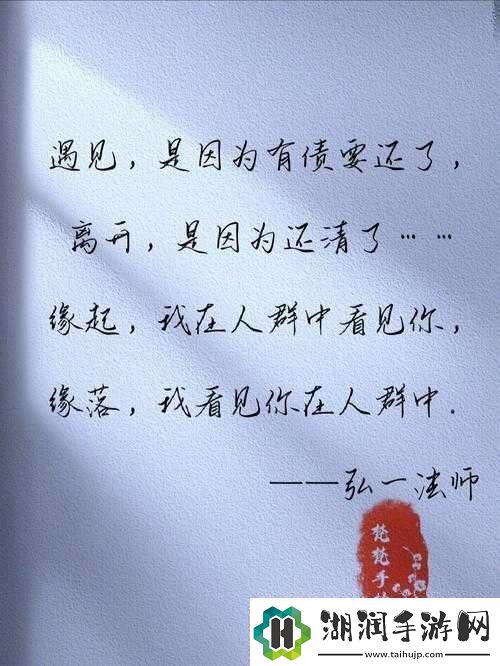 遇见，是因为有债要还了，
离开，是因为还清了……
缘起，我在人群中看见你，
缘落，我看见你在人群中.
——弘一法师
梵梵手
湖润手游网
www.taihujp.com